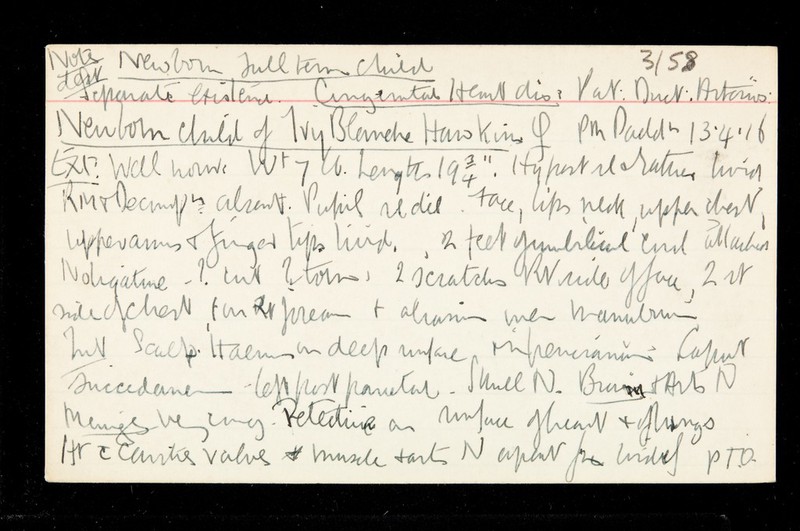 Note Newborn full term child 3/58
separate existence. Congenital Heart dis: Pat: Duct: Arterios:
Newborn child of Ivy Blanche Hawkins ♀ PM Paddn 13.4.16
Ext. Well nour: Wt 7 lb. Length 19 3/4". Hypost sl & rather livid
RM & Decompn absent. Pupils sl dil. Face, lips neck, upper chest,
upper arms & finger tips livid. 2 feet of umbilical cord attached
No ligature - ? cut ? torn: 2 scratches Rt side of face, 2 rt
side of chest, 1 on Rt forearm & abrasion over manubrium
Int Scalp. Haem on deep surface & in pericranium Caput
Succedaneum - left post parietal. Skull N. Brain & Arts N
Meninges very cong. Petechiae on surface of heart & of lungs
Ht c̄ cavities valves & muscle & arts N apart from P.T.O.